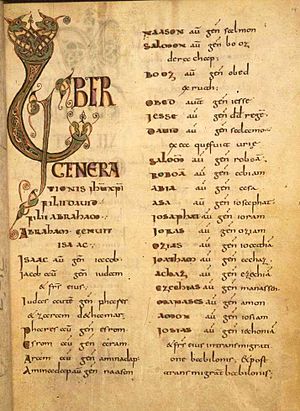 LIBER
GENERA
TIONIS IHU XPI
FILII DAUID
FILII ABRAHAM
ABRAHAM GENUIT
ISAAC
Isaac aū gen̄ iacob
Iacob aū gen̄ iudam
& fr̄s eius
Iudas autē gen̄ phares
& zaram de thamar
Phares aū gen̄ esrom
Esrom aū gen̄ aram
Aram aū gen̄ aminadap
Aminadap aū gen̄ naason
Naason aū gen̄ salmon
Salmon aū gen̄ booz
de rachab
Booz aū gen̄ obed
ex ruth
Obed aut̄ gen̄ iesse
Iesse aū gen̄ dd̄ regē
Dauid aū gen̄ salomo
ex ea que fuit urie
Salomō aū gen̄ roboā
Roboā aū gen̄ abiam
Abia aū gen̄ asa
Asa aū gen̄ iosaphat
Iosaphat aū gen̄ ioram
Ioras aū gen̄ oziam
Ozias aū gen̄ ioathā
Ioatham aū gen̄ achaz
Achaz aū gen̄ ezechiā
Ezechias aū gen̄ manassen
Manases aū gen̄ amon
Amon aū gen̄ iosiam
Iosias aū gen̄ iechoniā
& fr̄s eius in transmigrati
one babilonis, & post
transmigrat babilonis